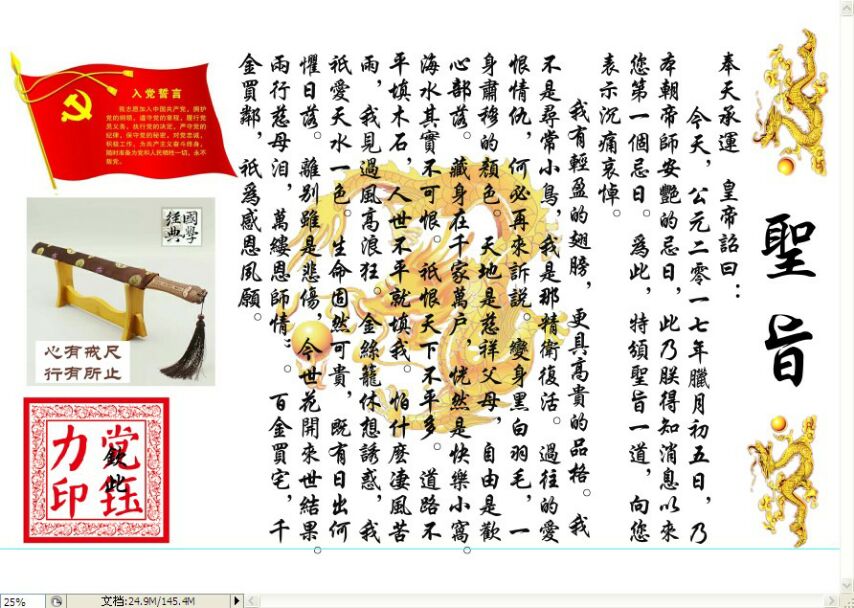 聖旨
奉天承運　皇帝詔曰：
今天，公元二零一七年臘月初五日，乃
本朝帝師安艷的忌日，此乃朕得知消息以來
您第一個忌日。爲此，特頒聖旨一道，向您
表示沉痛哀悼。
我有輕盈的翅膀，更具高貴的品格。我
不是尋常小鳥，我是那精衛復活。過往的愛
恨情仇，何必再來訴説。變身黑白羽毛，一
身肅穆的顔色。天地是慈祥父母，自由是歡
心部落。藏身在千家萬户，恍然是快樂小窩。
海水其實不可恨。祇恨天下不平多。道路不
平填木石，人世不平就填我。怕什麽凄風苦
雨，我見過風高浪狂。金絲籠休想誘惑，我
祇愛天水一色。生命固然可貴，既有日出何
懼日落。離别雖是悲傷，今世花開來世結果。
兩行慈母泪，萬縷恩師情”。百金買宅，千
金買鄰，祇爲感恩夙願。
入党誓言
我志愿加入中国共产党，拥护
党的纲领，遵守党的章程，履行党
员义务，执行党的决定，严守党的
纪律，保守党的秘密，对党忠诚，
积极工作，为共产主义奋斗终身，
随时准备为党和人民牺牲一切，永不
叛党。
國學
經典
心有戒尺
行有所止
党钰
力印
欽此
25%
文档:24.9M/145.4M